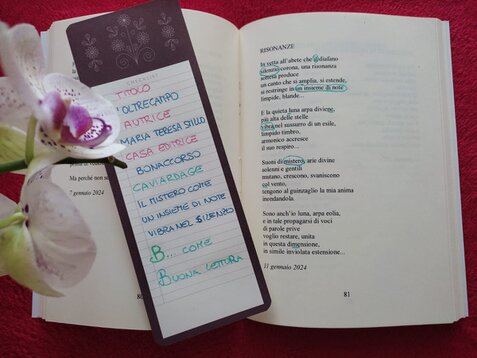 Ma perché non
7 gennaio 2024
80
CHECKLIST
TITOLO
L'OLTRECAMPO
AUTRICE
MARIA TERESA STILLO
CASA EDITRICE
BONACCORSO
CAVIARDAGE
IL MISTERO COME
UN INSIEME DI NOTE
VIBRA NEL SILENZO
B... COME
BUONA LETTURA
RISONANZE
In vetta all'abete che a diafano
silenzio corona, una risonanza
solleva produce
che si amplia, si estende,
si restringe in un insieme di note
limpide, blande...
E la quieta luna arpa diviene,
poi alta delle stelle
vibra nel sussurro di un esile,
limpido timbro,
armonico accresce
il suo respiro...
Suoni di mistero, arie divine
solenni e gentili
mutano, crescono, svaniscono
col vento,
tengono al guinzaglio la mia anima
inondandola.
Sono anch'io luna, arpa eolia,
e in tale propagarsi di voci
di parole prive
voglio restare, unita
in questa dimensione,
in simile inviolata estensione...
11 gennaio 2024
81